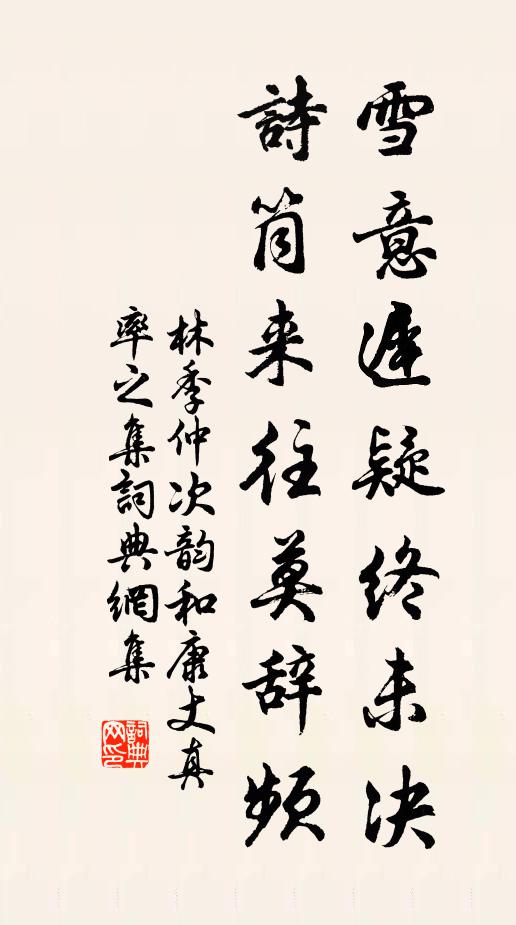 雪意遲疑終未決
詩筒来往莫辞頻
林季仲次韵和康丈真
率之集詞典網集
詞典網印